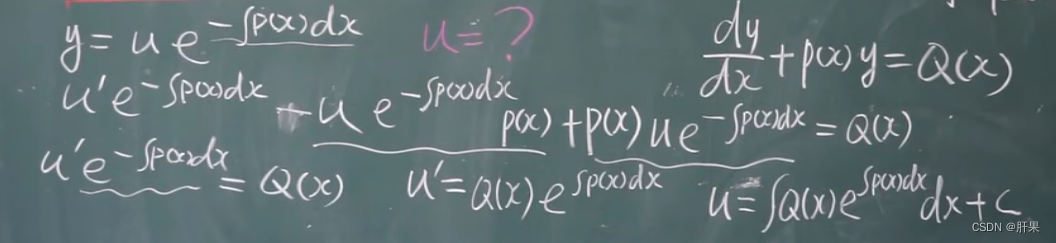 y = u e^{-∫p(x)dx} u = ? dy/dx + p(x) y = Q(x)
u' e^{-∫p(x)dx} - u e^{-∫p(x)dx} p(x) + p(x) u e^{-∫p(x)dx} = Q(x)
u' e^{-∫p(x)dx} = Q(x) u' = Q(x) e^{∫p(x)dx} u = ∫Q(x) e^{∫p(x)dx} dx + C
CSDN @肝果